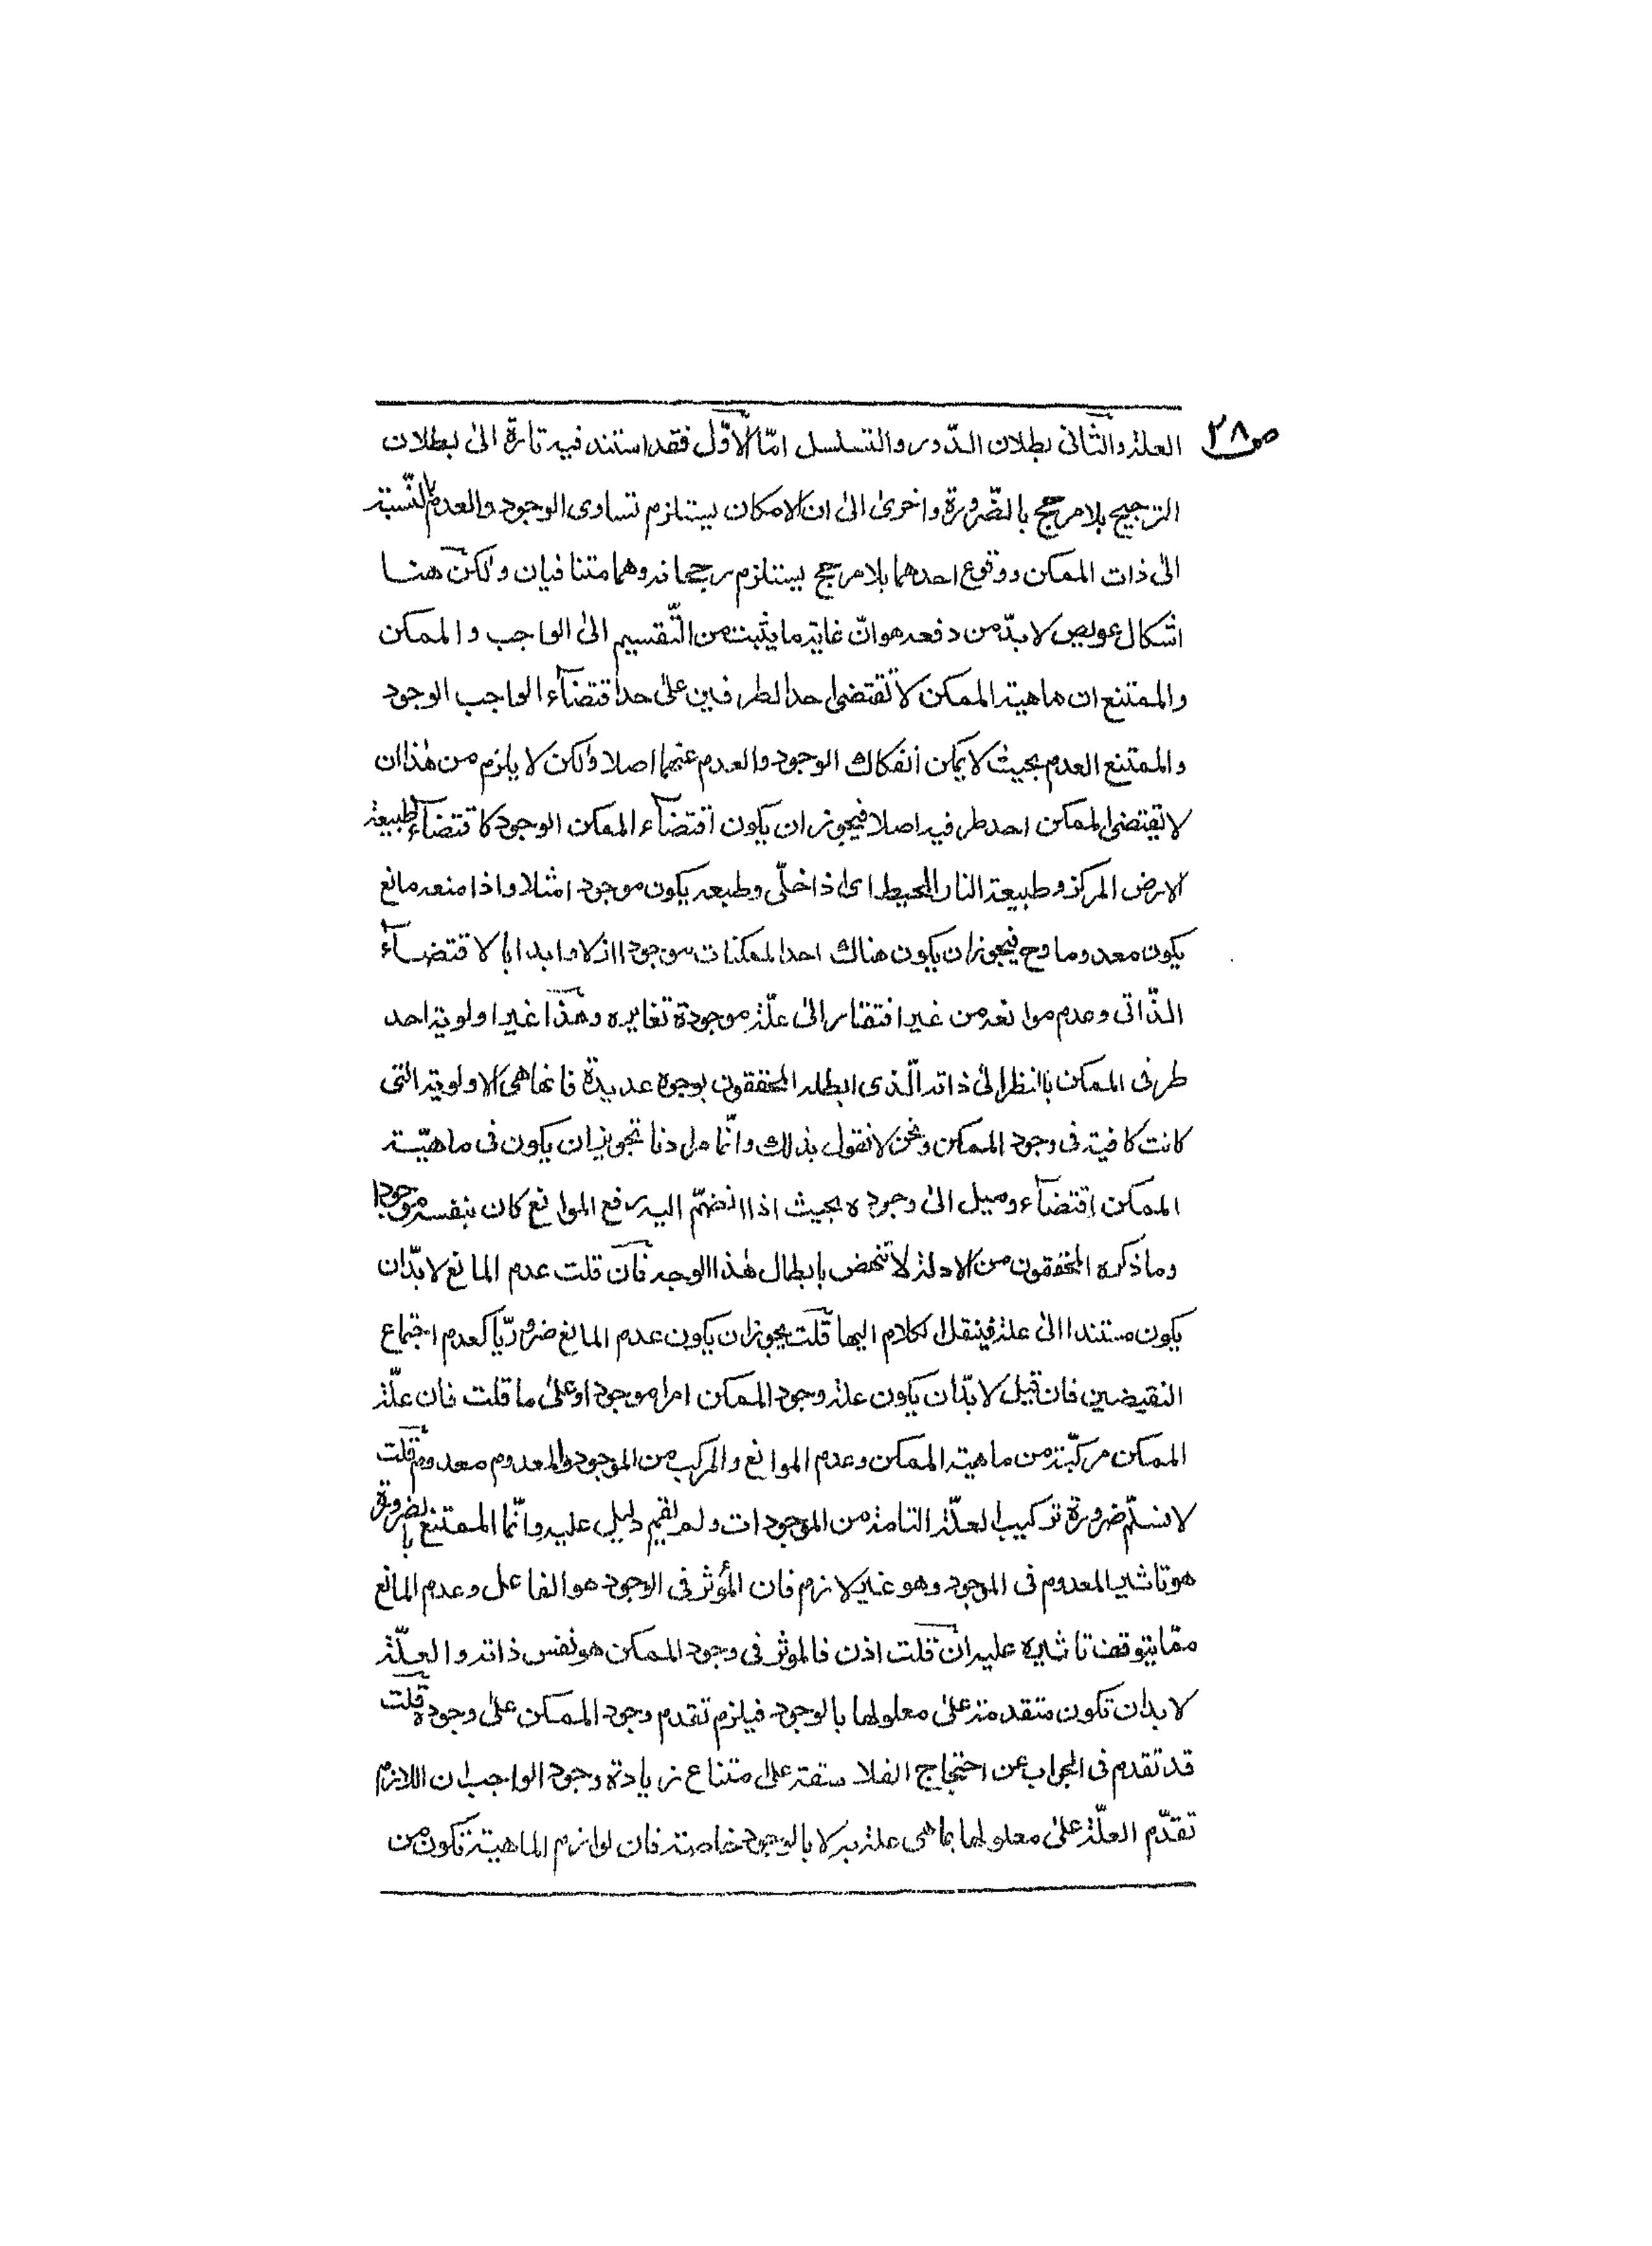 ص٢٨
العلة والثّانى بطلان الدّور والتسلسل امّا الاوّل فقد استند فيه تارة الىٰ بطلان
الترجيح بلا مرجح بالضّرورة واخرىٰ الىٰ ان الامكان يستلزم تساوى الوجود والعدم بالنّسبة
الىٰ ذات الممكن ووقوع احدهما بلا مرجح يستلزم رجحانه وهما متنافيان ولكن هنا
اشكال عويص لا بدّ من دفعه هو انّ غاية ما يثبت من التّقسيم الىٰ الواجب والممكن
والممتنع ان ماهية الممكن لا تقتضى احد الطرفين علىٰ حد اقتضآء الواجب الوجود
والممتنع العدم بحيث لا يمكن انفكاك الوجود والعدم عنهما اصلا ولكن لا يلزم من هٰذا ان
لا تقتضى الممكن احد طرفيه اصلا فيجوز ان يكون اقتضآء الممكن الوجود كاقتضآء طبيعة
الارض المركز وطبيعة النار المحيط اى اذا خلّى وطبعه يكون موجودا مثلا واذا منعه مانع
يكون معدوما وح فيجوز ان يكون هناك احد الممكنات موجودا ازلا وابدا بالاقتضآء
الذّاتى وعدم موانعه من غير افتقار الىٰ علّة موجودة تغايره وهٰذا غير اولوية احد
طرفى الممكن بالنظر الىٰ ذاته الّذى ابطله المحققون بوجوه عديدة فانها هى الاولوية التى
كانت كافية فى وجود الممكن ونحن لا نقول بذلك وانّما مرادنا تجويز ان يكون فى ماهيّة
الممكن اقتضآء وميل الىٰ وجوده بحيث اذا انضمّ اليه رفع الموانع كان بنفسه موجودا
وما ذكره المحققون من الادلة لا تنهض بابطال هٰذا الوجه فان قلت عدم المانع لا بدّ ان
يكون مستندا الىٰ علة فينقل الكلام اليها قلت يجوز ان يكون عدم المانع ضروريّا كعدم اجتماع
النقيضين فان قيل لا بدّ ان يكون علة وجود الممكن امرا موجودا وعلىٰ ما قلت فان علّة
الممكن مركّبة من ماهية الممكن وعدم الموانع والمركب من الموجود والمعدوم معدوم قلت
لا نسلّم ضرورة تركيب العلّة التامة من الموجودات ولم يقم دليل عليه وانّما الممتنع بالضرورة
هو تاثير المعدوم فى الموجود وهو غير لازم فان المؤثر فى الوجود هو الفاعل وعدم المانع
ممّا يتوقف تاثيره عليه ان قلت اذن فالموثر فى وجود الممكن هو نفس ذاته والعلّة
لا بد ان تكون متقدمة علىٰ معلولها بالوجود فيلزم تقدم وجود الممكن علىٰ وجوده قلت
قد تقدم فى الجواب عن احتجاج الفلاسفة علىٰ امتناع زيادة وجود الواجب ان اللازم
تقدّم العلّة علىٰ معلولها بما هى علة به لا بالوجود خاصة فان لوازم الماهية تكون من